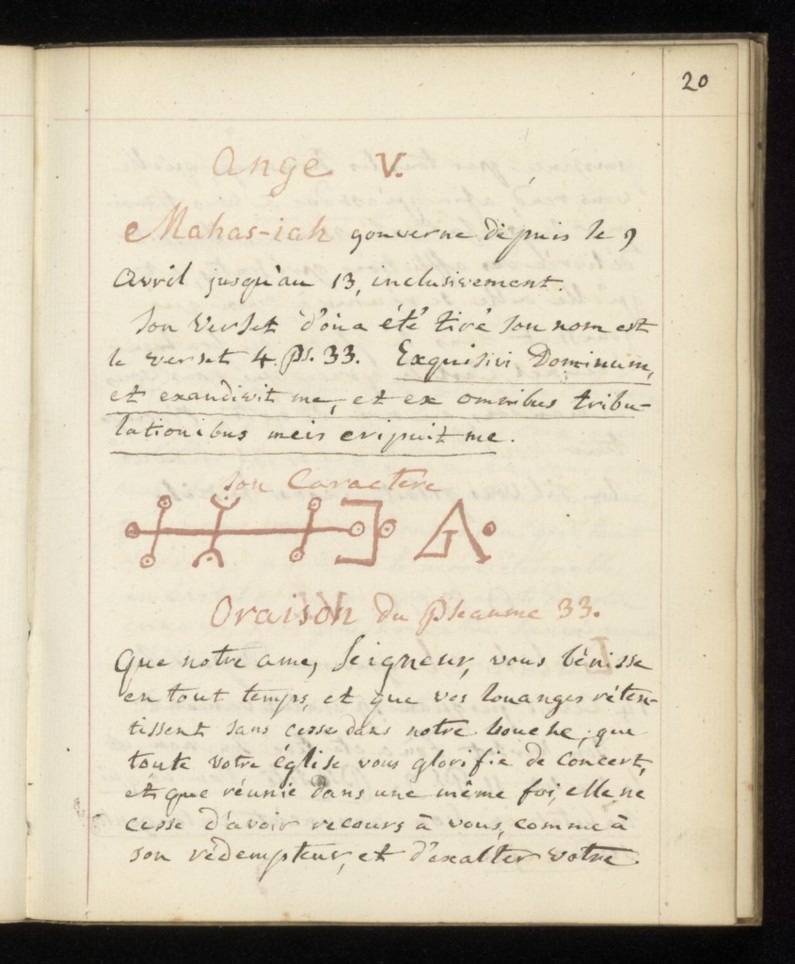 20
Ange V.
Mahas-iah gouverne depuis le 9
Avril jusqu'au 13, inclusivement.
Son Verset d'où a été tiré son nom est
le verset 4. ps. 33. Exquisivi Dominum,
et exaudivit me, et ex omnibus tribu-
lationibus meis eripuit me.
Son Caractere
Oraison du Pseaume 33.
Que notre ame, Seigneur, vous bénisse
en tout temps, et que vos louanges réten-
tissent sans cesse dans notre bouche, que
toute votre église vous glorifie de concert,
et que réunie dans une même foi, elle ne
cesse d'avoir recours à vous, comme à
son rédempteur, et d'exalter votre